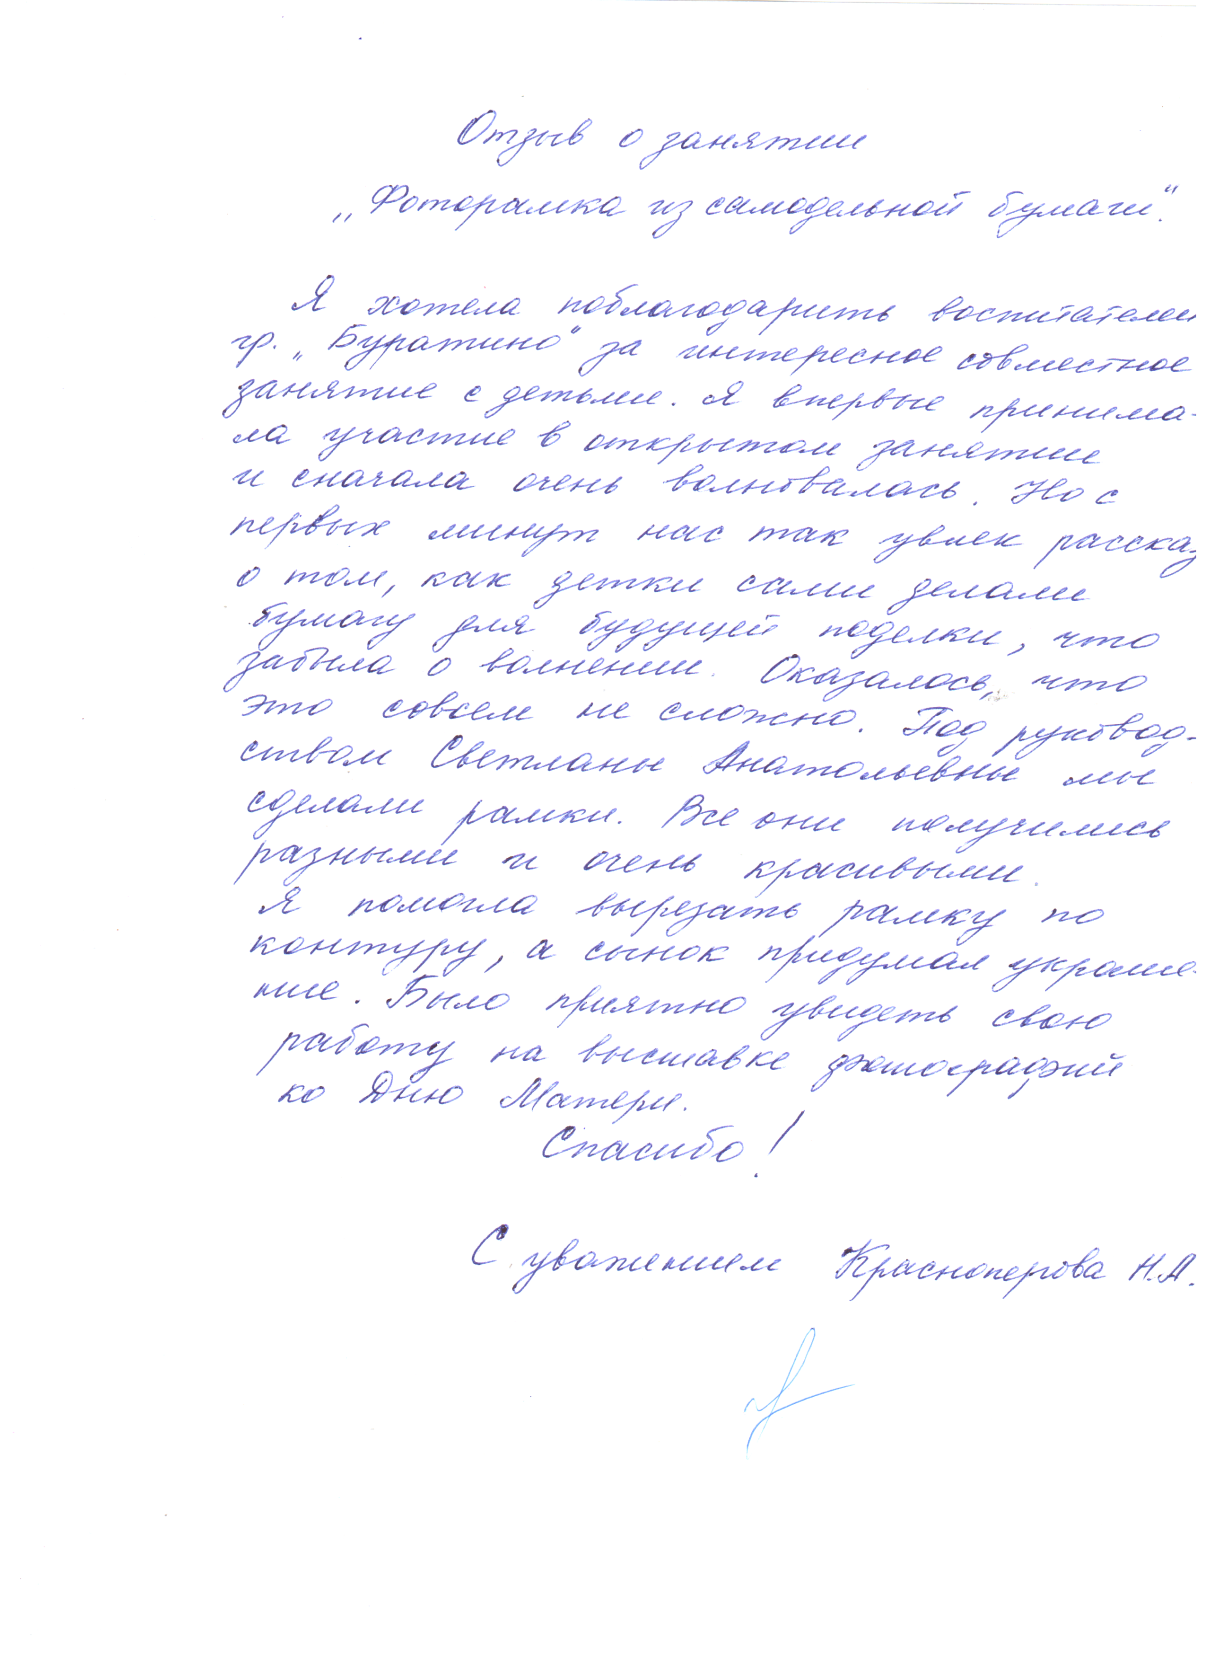 Отзыв о занятии
„Фоторамка из самодельной бумаги“.
Я хотела поблагодарить воспитателей
гр. „Буратино“ за интересное совместное
занятие с детьми. Я впервые принима-
ла участие в открытом занятии
и сначала очень волновалась. Но с
первых минут нас так увлек рассказ
о том, как детки сами делали
бумагу для будущей поделки, что
забыла о волнении. Оказалось, что
это совсем не сложно. Под руковод-
ством Светланы Анатольевны мы
сделали рамки. Все они получились
разными и очень красивыми.
Я помогла вырезать рамку по
контуру, а сынок придумал украше-
ние. Было приятно увидеть свою
работу на выставке фотографий
ко Дню Матери.
Спасибо!
С уважением Красноперова Н.А.